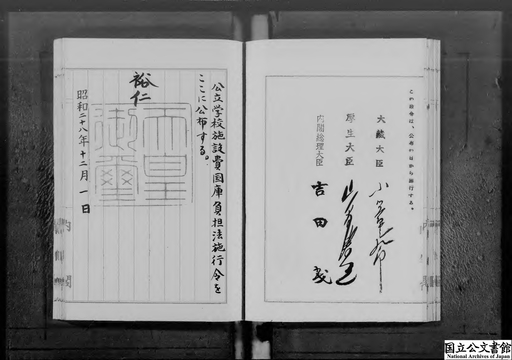 公立学校施設費国庫負担法施行令を
ここに公布する。
裕仁
天皇
御璽
昭和二十八年十二月一日
この政令は、公布の日から施行する。
大蔵大臣
厚生大臣
内閣総理大臣 吉田茂
国立公文書館
National Archives of Japan